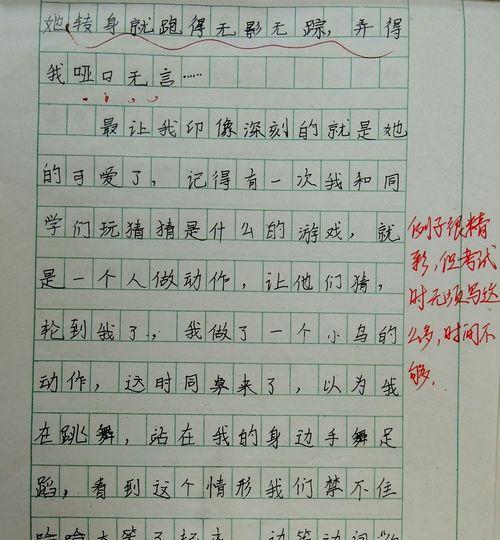 她转身就跑得无影无踪，弄得
我哑口无言……
最让我印像深刻的就是她
的可爱了，记得有一次我和同
学们玩猜猜是什么的游戏，就
是一个人做动作，让他们猜，
轮到我了，我做了一个小鸟的
动作，这时同桌来了，以为我
在跳舞，站在我的身边手舞足
蹈，看到这个情形我们禁不住
哈哈大笑了起来，边笑边问
例子很精
彩，但考试
时无须写这
么多，时间不
够。